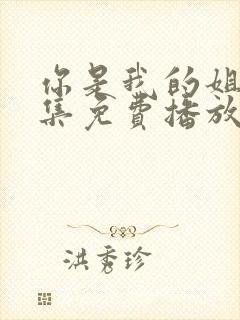 你是我的姐
集免費播放
洪秀珍